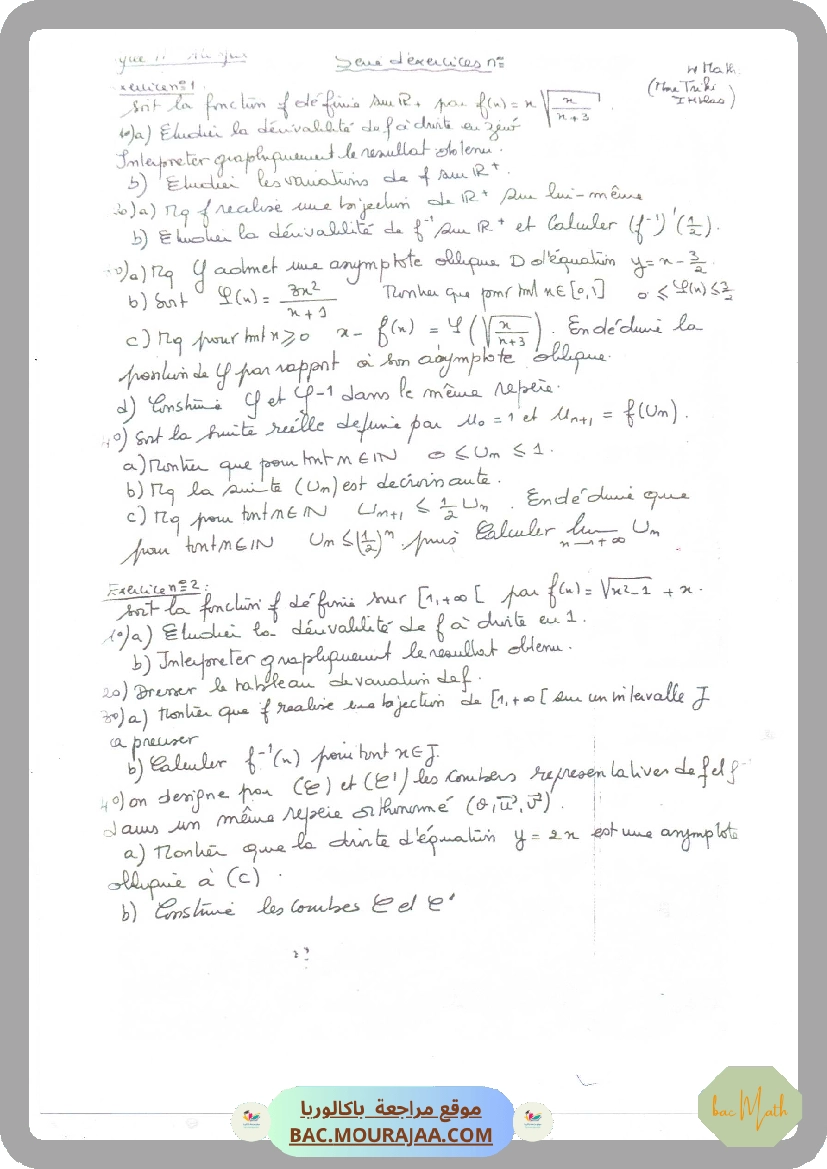 Serie d'exercices n°
4 Math
(Mme Triki
Ikhlas)
Exercice n°1
Soit la fonction f définie sur ℝ+ par f(x) = x √(x/(x+3))
1°)a) Etudier la dérivabilité de f à droite en zéro
Interpreter graphiquement le resultat obtenu.
b) Etudier les variations de f sur ℝ+.
2°)a) Mq f realise une bijection de ℝ+ sur lui-même
b) Etudier la dérivabilité de f⁻¹ sur ℝ+ et Calculer (f⁻¹)'(1/2).
3°)a) Mq 𝒞 admet une asymptote oblique D d'équation y = x - 3/2
b) Soit φ(x) = 3x²/(x+1) Montrer que pour tout x ∈ [0,1] 0 ≤ φ(x) ≤ 3/2
c) Mq pour tout x ≥ 0 x - f(x) = φ(√(x/(x+3))). En déduire la
position de 𝒞 par rapport à son asymptote oblique.
d) Construire 𝒞 et 𝒞-1 dans le même repère.
4°) Soit la suite réelle definie par U₀ = 1 et Uₙ₊₁ = f(Uₙ).
a) Montrer que pour tout n ∈ IN 0 ≤ Uₙ ≤ 1.
b) Mq la suite (Uₙ) est decroissante.
c) Mq pour tout n ∈ IN Uₙ₊₁ ≤ 1/2 Uₙ. En déduire que
pour tout n ∈ IN Uₙ ≤ (1/2)ⁿ. puis Calculer lim n→+∞ Uₙ
Exercice n°2:
Soit la fonction f définie sur [1,+∞[ par f(x) = √(x²-1) + x.
1°)a) Etudier la dérivabilité de f à droite en 1.
b) Interpreter graphiquement le resultat obtenu.
2°) Dresser le tableau de variation de f.
3°)a) Montrer que f realise une bijection de [1,+∞[ sur un intervalle J
a preciser
b) Calculer f⁻¹(x) pour tout x ∈ J.
4°) on designe par (𝒞) et (𝒞') les courbes representatives de f et f⁻¹
dans un même repère orthonormé (O, u⃗, v⃗).
a) Montrer que la droite d'équation y = 2x est une asymptote
oblique à (C).
b) Construire les courbes 𝒞 et 𝒞'
موقع مراجعة باكالوريا
BAC.MOURAJAA.COM
bac Math